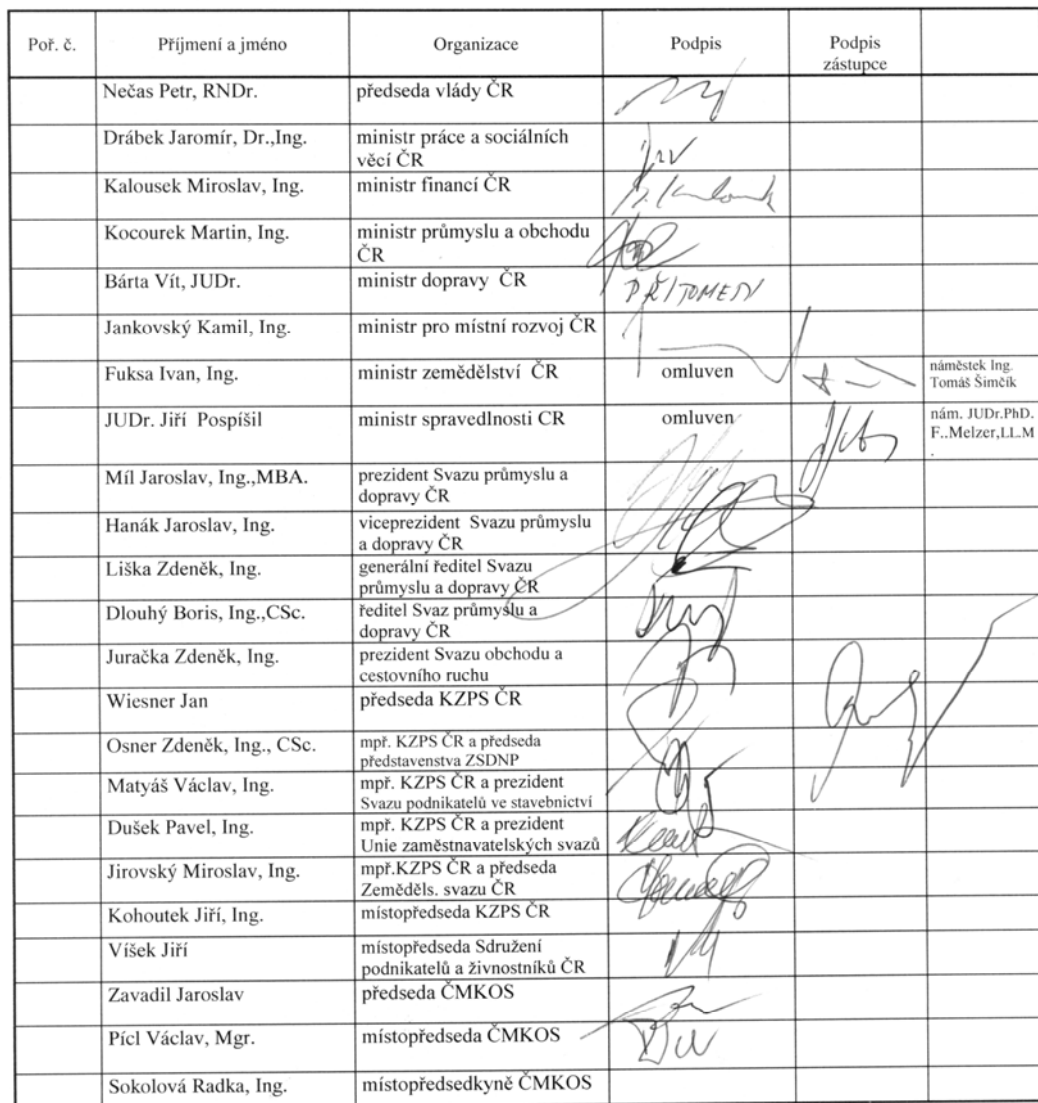 Poř. č. Příjmení a jméno Organizace Podpis Podpis
zástupce
Nečas Petr, RNDr. předseda vlády ČR
Drábek Jaromír, Dr.,Ing. ministr práce a sociálních
věcí ČR
Kalousek Miroslav, Ing. ministr financí ČR
Kocourek Martin, Ing. ministr průmyslu a obchodu
ČR
Bárta Vít, JUDr. ministr dopravy ČR PŘÍTOMEN
Jankovský Kamil, Ing. ministr pro místní rozvoj ČR
Fuksa Ivan, Ing. ministr zemědělství ČR omluven náměstek Ing.
Tomáš Šimčík
JUDr. Jiří Pospíšil ministr spravedlnosti CR omluven nám. JUDr.PhD.
F..Melzer,LL.M
.
Míl Jaroslav, Ing.,MBA. prezident Svazu průmyslu a
dopravy ČR
Hanák Jaroslav, Ing. viceprezident Svazu průmyslu
a dopravy ČR
Liška Zdeněk, Ing. generální ředitel Svazu
průmyslu a dopravy ČR
Dlouhý Boris, Ing.,CSc. ředitel Svaz průmyslu a
dopravy ČR
Juračka Zdeněk, Ing. prezident Svazu obchodu a
cestovního ruchu
Wiesner Jan předseda KZPS ČR
Osner Zdeněk, Ing., CSc. mpř. KZPS ČR a předseda
představenstva ZSDNP
Matyáš Václav, Ing. mpř. KZPS ČR a prezident
Svazu podnikatelů ve stavebnictví
Dušek Pavel, Ing. mpř. KZPS ČR a prezident
Unie zaměstnavatelských svazů
Jirovský Miroslav, Ing. mpř.KZPS ČR a předseda
Zeměděls. svazu ČR
Kohoutek Jiří, Ing. místopředseda KZPS ČR
Víšek Jiří místopředseda Sdružení
podnikatelů a živnostníků ČR
Zavadil Jaroslav předseda ČMKOS
Pícl Václav, Mgr. místopředseda ČMKOS
Sokolová Radka, Ing. místopředsedkyně ČMKOS